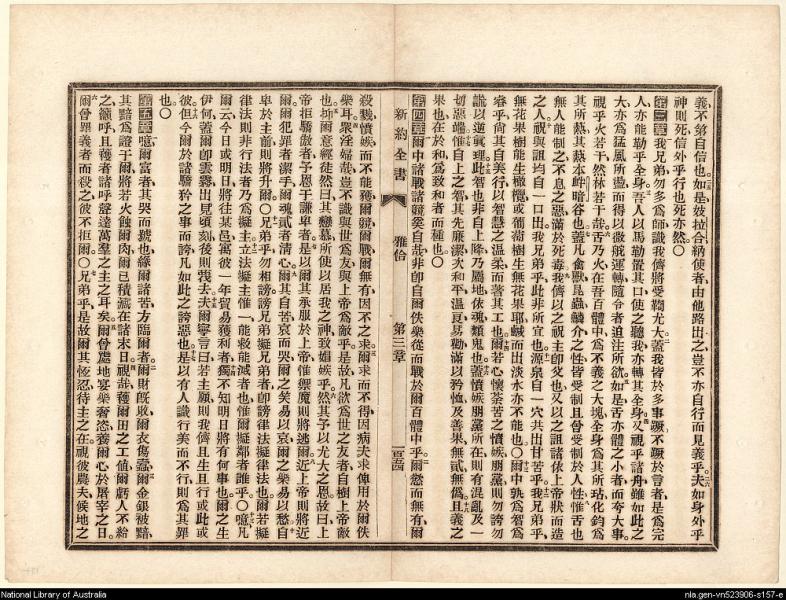 義不第自信也如是妓拉合納使者由他路出之豈不亦自行而見義乎夫如身外乎
神則死信外乎行也死亦然〇
第三章我兄弟勿多爲師識我儕將受鞫尤大蓋我皆於多事蹶不蹶於言者是爲完
人亦能勒乎全身吾人以馬勒置其口使之聽我亦轉其全身又視乎諸舟雖如此之
大亦爲猛風所盪而得以微舵運轉隨令者迫注所欲如是舌亦體之小者而夸大事
視乎火若干然林若干哉舌乃火在吾百體中爲不義之大塊全身爲其所玷化鈞爲
無人能制之不息之惡滿於死毒我儕以之祝主卽父也又以之詛諸依上帝狀而造
之人祝與詛均自一口出我兄弟乎此非所宜也源泉自一穴共出甘苦乎我兄弟乎
無花果樹能生橄欖或葡萄樹生無花果耶鹹而出淡水亦不能也〇爾中孰爲智爲
睿乎尚其自美行以智慧之溫柔而著其工也爾若心懷荼苦之憤嫉朋黨則勿誇勿
謊以逆眞理此智也非自上降乃屬地依魂類鬼也蓋憤嫉朋黨所在則有混亂及一
切惡端惟自上之智其先廉潔次和平溫良易勸滿以矜恤及善果無貳無僞且義之
果也在於和爲致和者而種也〇
第四章爾中諸戰諸競奚自哉非卽自爾佚樂從而戰於爾百體中乎爾慾而無有爾
新約全書
雅伯
第三章
殺戮憤嫉而不能獲爾競爾戰爾無有因不之求爾求而不得因病夫求俾用於爾佚
樂耳衆淫婦哉豈不識與世爲友與上帝爲敵乎是故凡欲爲世之友者自樹上帝敵
也抑爾意經徒然曰其戀慕所使以居我之神致媢嫉乎然其予以尤大之恩故曰上
帝拒驕傲者予恩于謙卑者是以爾其承服於上帝惟禦魔則將逃爾近上帝則將近
爾爾犯罪者潔手爾魂貳者淸心爾其自苦哀而哭爾之笑易以哀爾之樂易以愁自
卑於主前則將升爾〇兄弟乎勿相謗謗兄弟擬兄弟者卽謗律法擬律法也爾若擬
律法則非行法者乃爲擬主立法擬主惟一能救能滅者也惟爾擬鄰者誰乎〇噫凡
爾云今日或明日將往某邑萬彼一年貿易獲利者獨不知明日將有何事也爾之生
伊何蓋爾卽雲霧出見頃刻後則發去夫爾寧言曰若主願則我儕且生且行或此或
彼但今爾於諸驕矜之事而誇凡如此之誇惡也是以有人識行美而不行則爲其罪
也〇
第五章噫爾富者其哭而號也緣爾諸苦方臨爾者爾財旣敗爾衣傷蠹爾金銀被黯
其黯爲證于爾將若火蝕爾肉爾已積藏在諸末日視哉穫爾田之工値爾虧人不給
之籲呼且穫者諸呼聲達萬羣之主之耳矣爾曾處地宴樂奢恣養爾心於屠宰之日
爾曾罪義者而殺之彼不拒爾〇兄弟乎是故爾其忍待主之在視彼農夫候地之
National Library of Australia
nla.gen-vn523906-s157-e